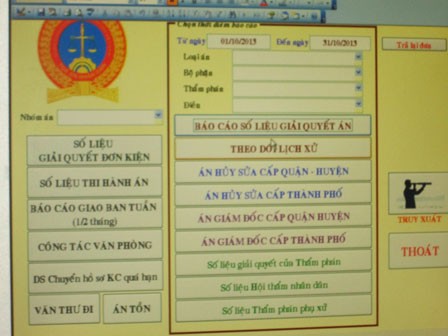 Chọn thời điểm báo cáo
Từ ngày 01/10/2015 Đến ngày 31/10/2015
Loại án
Bộ phận
Thẩm phán
Diễn
Nhóm án
SỐ LIỆU
GIẢI QUYẾT ĐƠN KIỆN
SỐ LIỆU THI HÀNH ÁN
BÁO CÁO GIAO BAN TUẦN
(1/2 tháng)
CÔNG TÁC VĂN PHÒNG
DS Chuyển hồ sơ KC quá hạn
VĂN THƯ ĐI
ÁN TỒN
BÁO CÁO SỐ LIỆU GIẢI QUYẾT ÁN
THEO DÕI LỊCH XỬ
ÁN HỦY SỬA CẤP QUẬN - HUYỆN
ÁN HỦY SỬA CẤP THÀNH PHỐ
ÁN GIÁM ĐỐC CẤP QUẬN HUYỆN
ÁN GIÁM ĐỐC CẤP THÀNH PHỐ
Số liệu giải quyết của Thẩm phán
Số liệu Hội thẩm nhân dân
Số liệu Thẩm phán phụ xử
Trả lại đơn
TRUY XUẤT
THOÁT